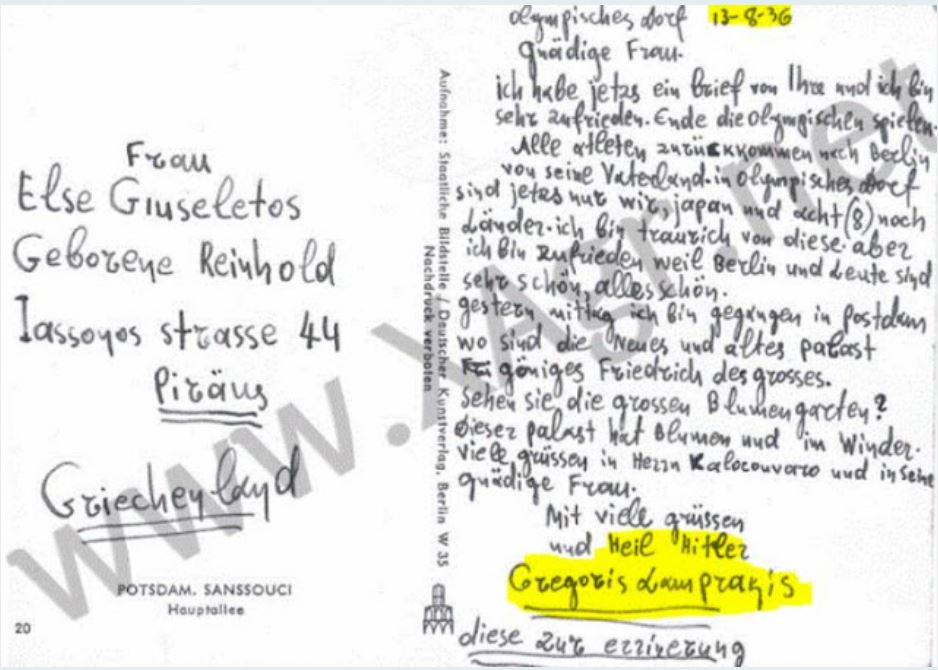 Frau
Else Giuseletos
Geborene Reinhold
Iassonos strasse 44
Piräus
Griechenland
POTSDAM. SANSSOUCI
Hauptallee
20
Aufnahme: Staatliche Bildstelle / Deutscher Kunstverlag, Berlin W 35
Nachdruck verboten
olympisches dorf 13-8-36
gnädige Frau.
ich habe jetzs ein brief von Ihre und ich bin
sehr zufrieden. Ende die olympischen spielen.
Alle atleten zurückkommen nach Berlin
von seine Vaterland. in olympisches dorf
sind jetzs nur wir, japan und acht (8) noch
Länder. ich bin traurich von diese. aber
ich bin zufrieden weil Berlin und Leute sind
sehr schön, alles schön.
gestern mittag ich bin gegangen in postdam
wo sind die Neues und altes palast
göniges Friedrich des grosses.
Sehen sie die grossen Blumengarten?
dieser palast hat Blumen und im Winder.
viele grüssen in Herrn Kalocouvaro und in seine
gnädige Frau.
Mit viele grüssen
und Heil Hitler
Gregoris Lamprakis
diese zur errinerung
www.xAgr.net